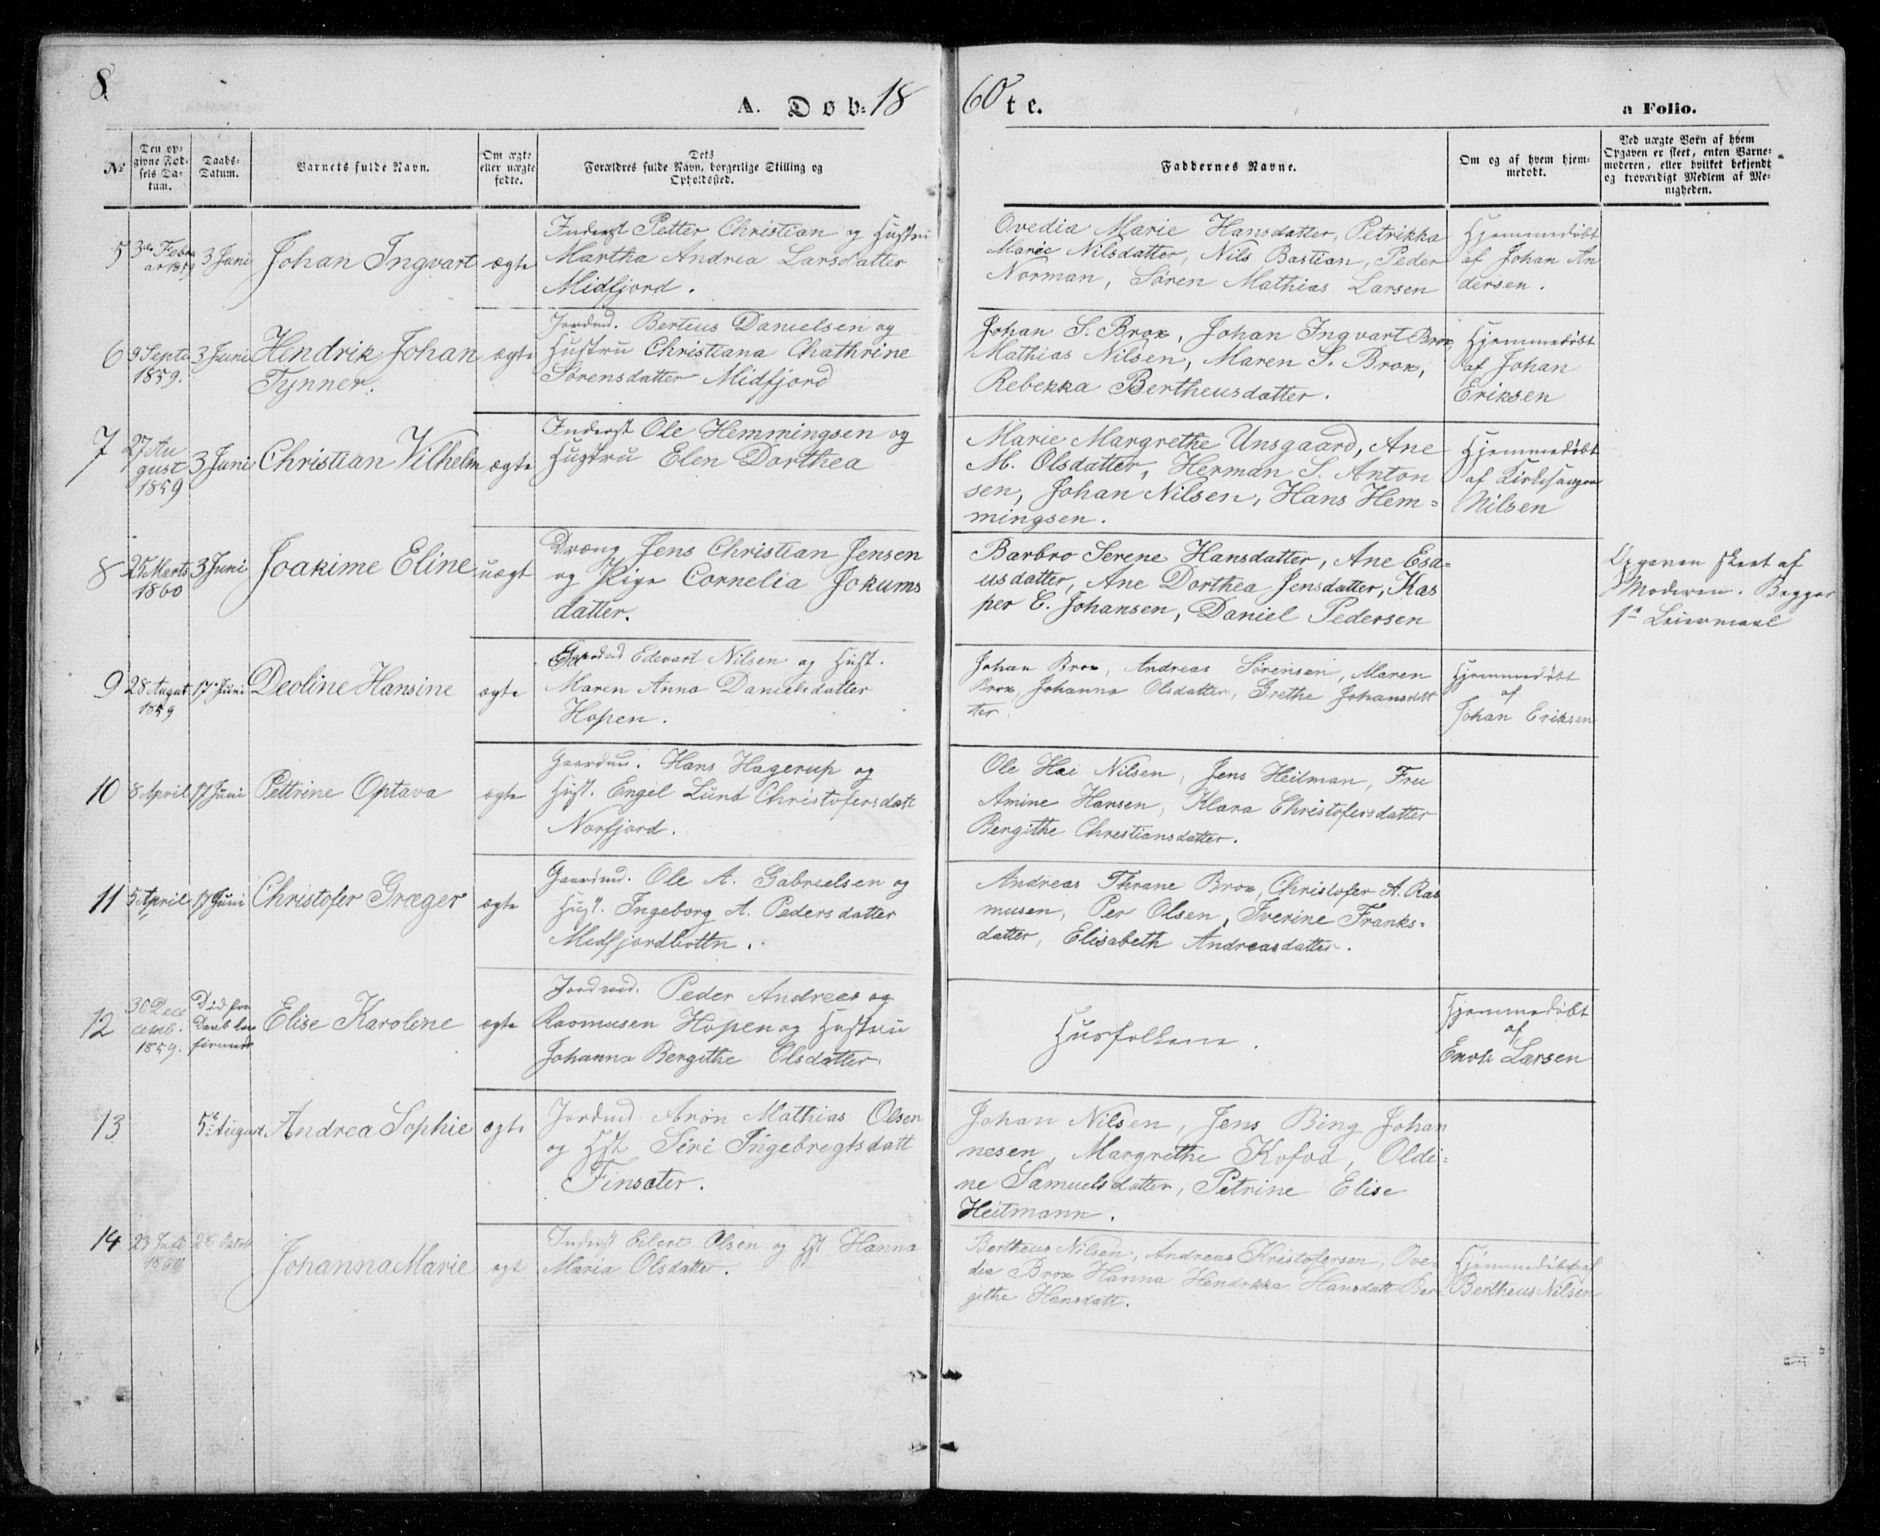 8
A. Døb: 18 60 te.
a Folio.
No
Den opgivne Fødsels Datum.
Daabs-Datum.
Barnets fulde Navn.
Om ægte eller uægte fødte.
Dets Forældres fulde Navn, borgerlige Stilling og Opholdssted.
Faddernes Navne.
Om og af hvem hjemmedøbt.
Ved uægte Børn af hvem Opgaven er skeet, enten Barnemoderen, eller hvilket bekjendt og troværdigt Medlem af Menigheden.
5 3die Febru 3 Juni Johan Ingvart ægte
Inderst Petter Christian og Hustru
Martha Andrea Larsdatter
Midfjord.
Ovedia Marie Hansdatter, Petrikka
Marie Nilsdatter, Nils Bastian, Peder
Norman, Søren Mathias Larsen
Hjemmedøbt
af Johan An
dersen.
6 9 Septe 1859. 3 Juni Hendrik Johan
Tynner. ægte
Jordmd. Berteus Danielsen og
Hustru Christiana Chathrine
Sørensdatter Midfjord
Johan S. Brox, Johan Ingvart Brox,
Mathias Nilsen, Maren S. Brox,
Rebekka Bertheusdatter.
Hjemmedøbt
af Johan
Eriksen
7 27 Au
gust
1859 3 Juni Christian Vilhelm ægte
Inderst Ole Hemmingsen og
Hustru Elen Dorthea
Marie Margrethe Unsgaard, Ane
M. Olsdatter, Herman S. Anton
sen, Johan Nilsen, Hans Hem=
mingsen.
Hjemmedøbt
af Kirkesanger
Nilsen
8 25 Marts
1860 3 Juni Joakime Eline uægt
Dræng Jens Christian Jensen
og Pige Cornelia Jokums
datter.
Barbro Serene Hansdatter, Ane Esa=
usdatter, Ane Dorthea Jensdatter, Kas
per E. Johansen, Daniel Pedersen
Opgaven skeet af
Moderen. Begges
1ste Leiermaal
9 28 August
1859 17 Juni Deoline Hansine ægte
Edevart Nilsen og Hust.
Maren Anna Danielsdatter
Hopen.
Johan Brox, Andreas Sørensen, Maren
Brox, Johanna Olsdatter, Grethe Johansdat
ter.
Hjemmedøbt
af
Johan Eriksen
10 8 April 17 Juni Pettrine Optava ægte
Gaardmd. Hans Hagerup og
Hust. Engel Lund Christofersdatt
Norfjord.
Ole Hai Nilsen, Jens Heitman, Fru
Amine Hansen, Klara Christofersdatter
Bergithe Christiansdatter.
11 5 April 17 Juni Christofer Græger ægte
Gaardmd. Ole A. Gabrielsen og
Hust. Ingeborg A. Pedersdatter
Midfjordbottn.
Andreas Thrane Brox, Christofer A. Ras
musen, Per Olsen, Iverine Franks=
datter, Elisabeth Andreasdatter.
12 30 Dece
cemb.
1859. Død før
Daab Elise Karoline ægte
Jordmd. Peder Andreas og
Rasmusen Hopen og Hustru
Johanna Bergithe Olsdatter.
Husfolkene.
Hjemmedøbt
af
Enok Larsen
13 5te August. Andrea Sophie ægte
Jordmd. Aron Mathias Olsen
og Hst Siri Ingebregtsdatt
Finsæter.
Johan Nilsen, Jens Bing Johan
nesen, Margrethe Kofod, Oldi=
ne Samuelsdatter, Petrine Elise
Heitmann.
14 23 Juli
1860 28 Octob Johanna Marie ægt
Inderst Eilert Olsen og Hst Hanna
Maria Olsdatter.
Bertheus Nilsen, Andreas Kristofersen, Ove=
dia Brox Hanna Hendrikka Hansdatt Ber=
githe Hansdatt.
Hjemmedøbt af
Bertheus Nilsen